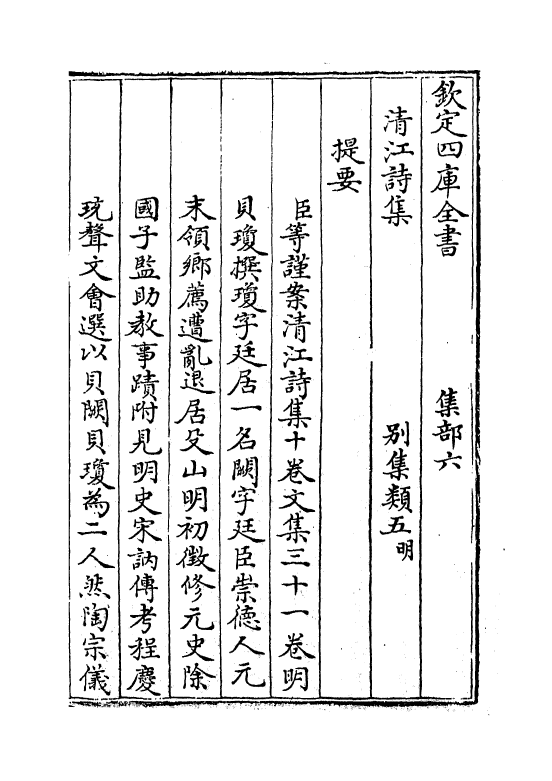 欽定四庫全書　集部六
清江詩集　别集類五明
提要
臣等謹案清江詩集十卷文集三十一卷明
貝瓊撰瓊字廷居一名闕字廷臣崇德人元
末領鄉薦遭亂退居殳山明初徵修元史除
國子監助教事蹟附見明史宋訥傳考程慶
珫聲文會選以貝闕貝瓊為二人然陶宗儀